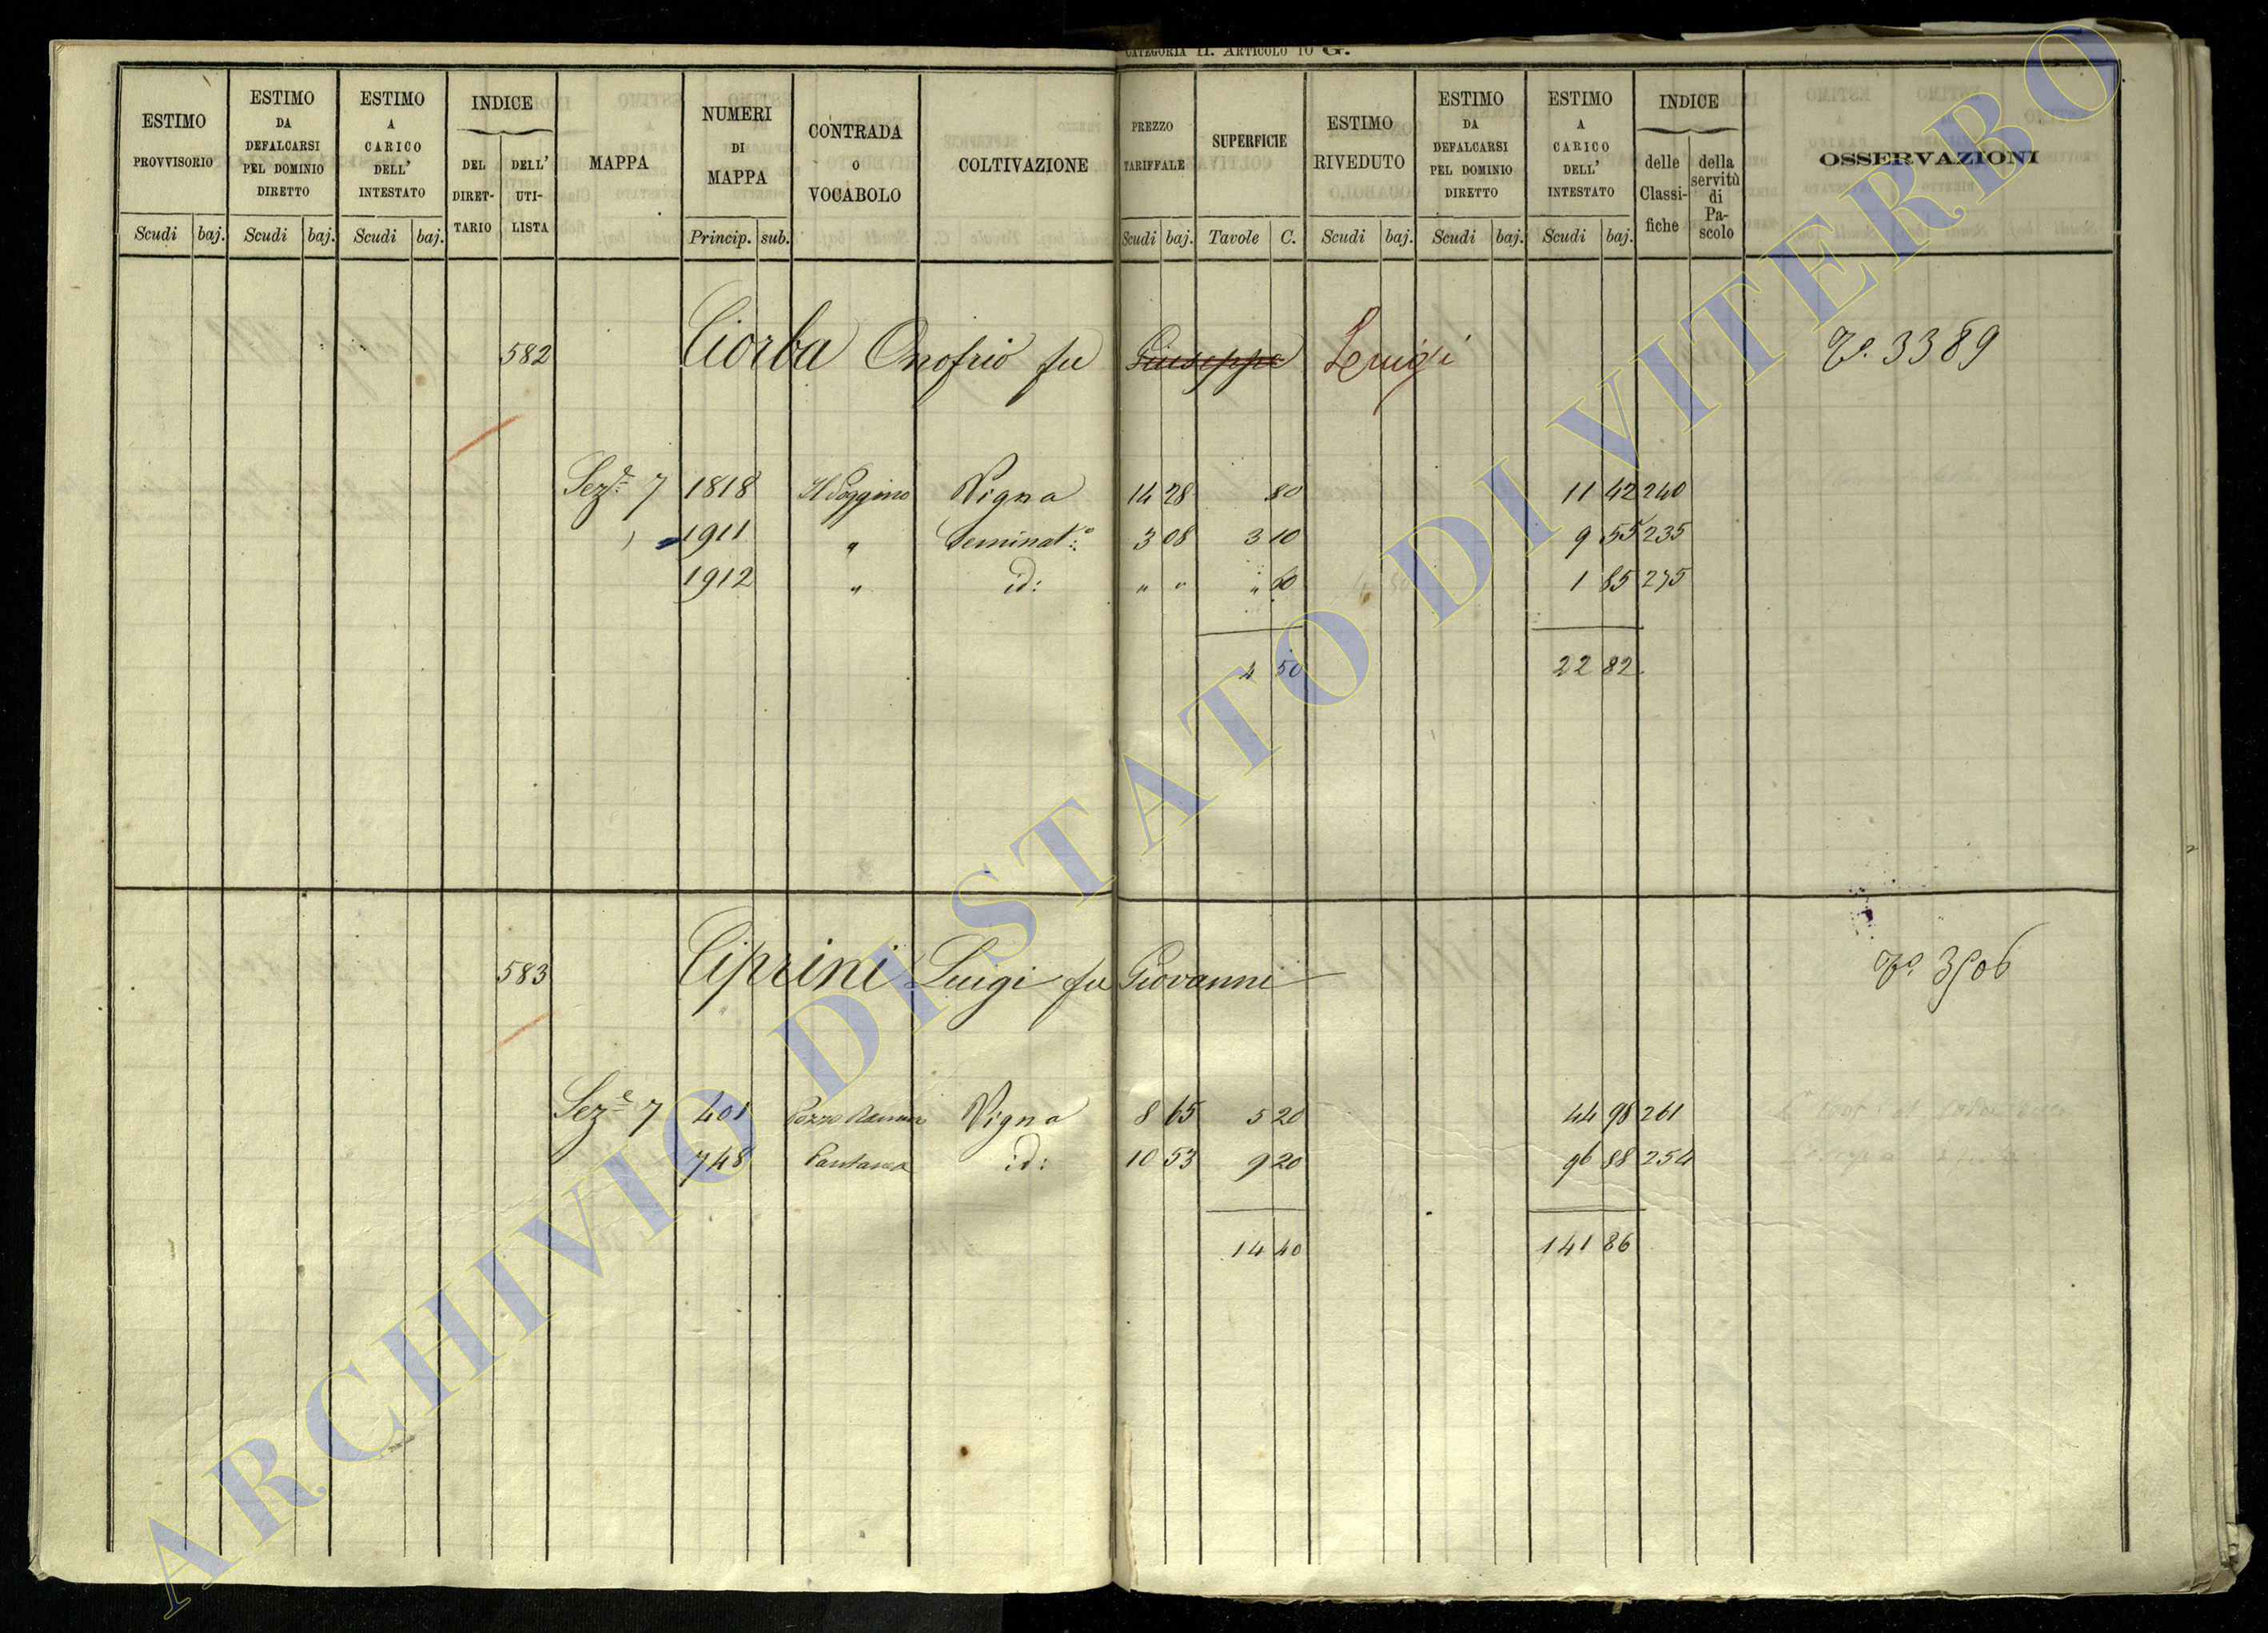 CATEGORIA II. ARTICOLO 10 G.
ESTIMO PROVVISORIO Scudi baj.
ESTIMO DA DEFALCARSI PEL DOMINIO DIRETTO Scudi baj.
ESTIMO A CARICO DELL' INTESTATO Scudi baj.
INDICE DEL DIRET-TARIO DELL' UTI-LISTA
MAPPA
NUMERI DI MAPPA Princip. sub.
CONTRADA O VOCABOLO
COLTIVAZIONE
PREZZO TARIFFALE Scudi baj.
SUPERFICIE Tavole C.
ESTIMO RIVEDUTO Scudi baj.
ESTIMO DA DEFALCARSI PEL DOMINIO DIRETTO Scudi baj.
ESTIMO A CARICO DELL' INTESTATO Scudi baj.
INDICE delle Classi-fiche della servitù di Pa-scolo
OSSERVAZIONI
582 Ciorba Onofrio fu Giuseppe Luigi 3389
Sez.e 7 1818 Il Poggino Vigna 14 28 80 11 42 240
1911 " Seminat.o 3 08 3 10 9 55 235
1912 " id: " " " 60 1 85 235
4 50 22 82
583 Ciprini Luigi fu Giovanni 3506
Sez.e 7 401 Pozzo Vigna 8 65 5 20 44 98 261
748 Pantana id: 10 53 9 20 96 88 254
14 40 141 86
ARCHIVIO DI STATO DI VITERBO